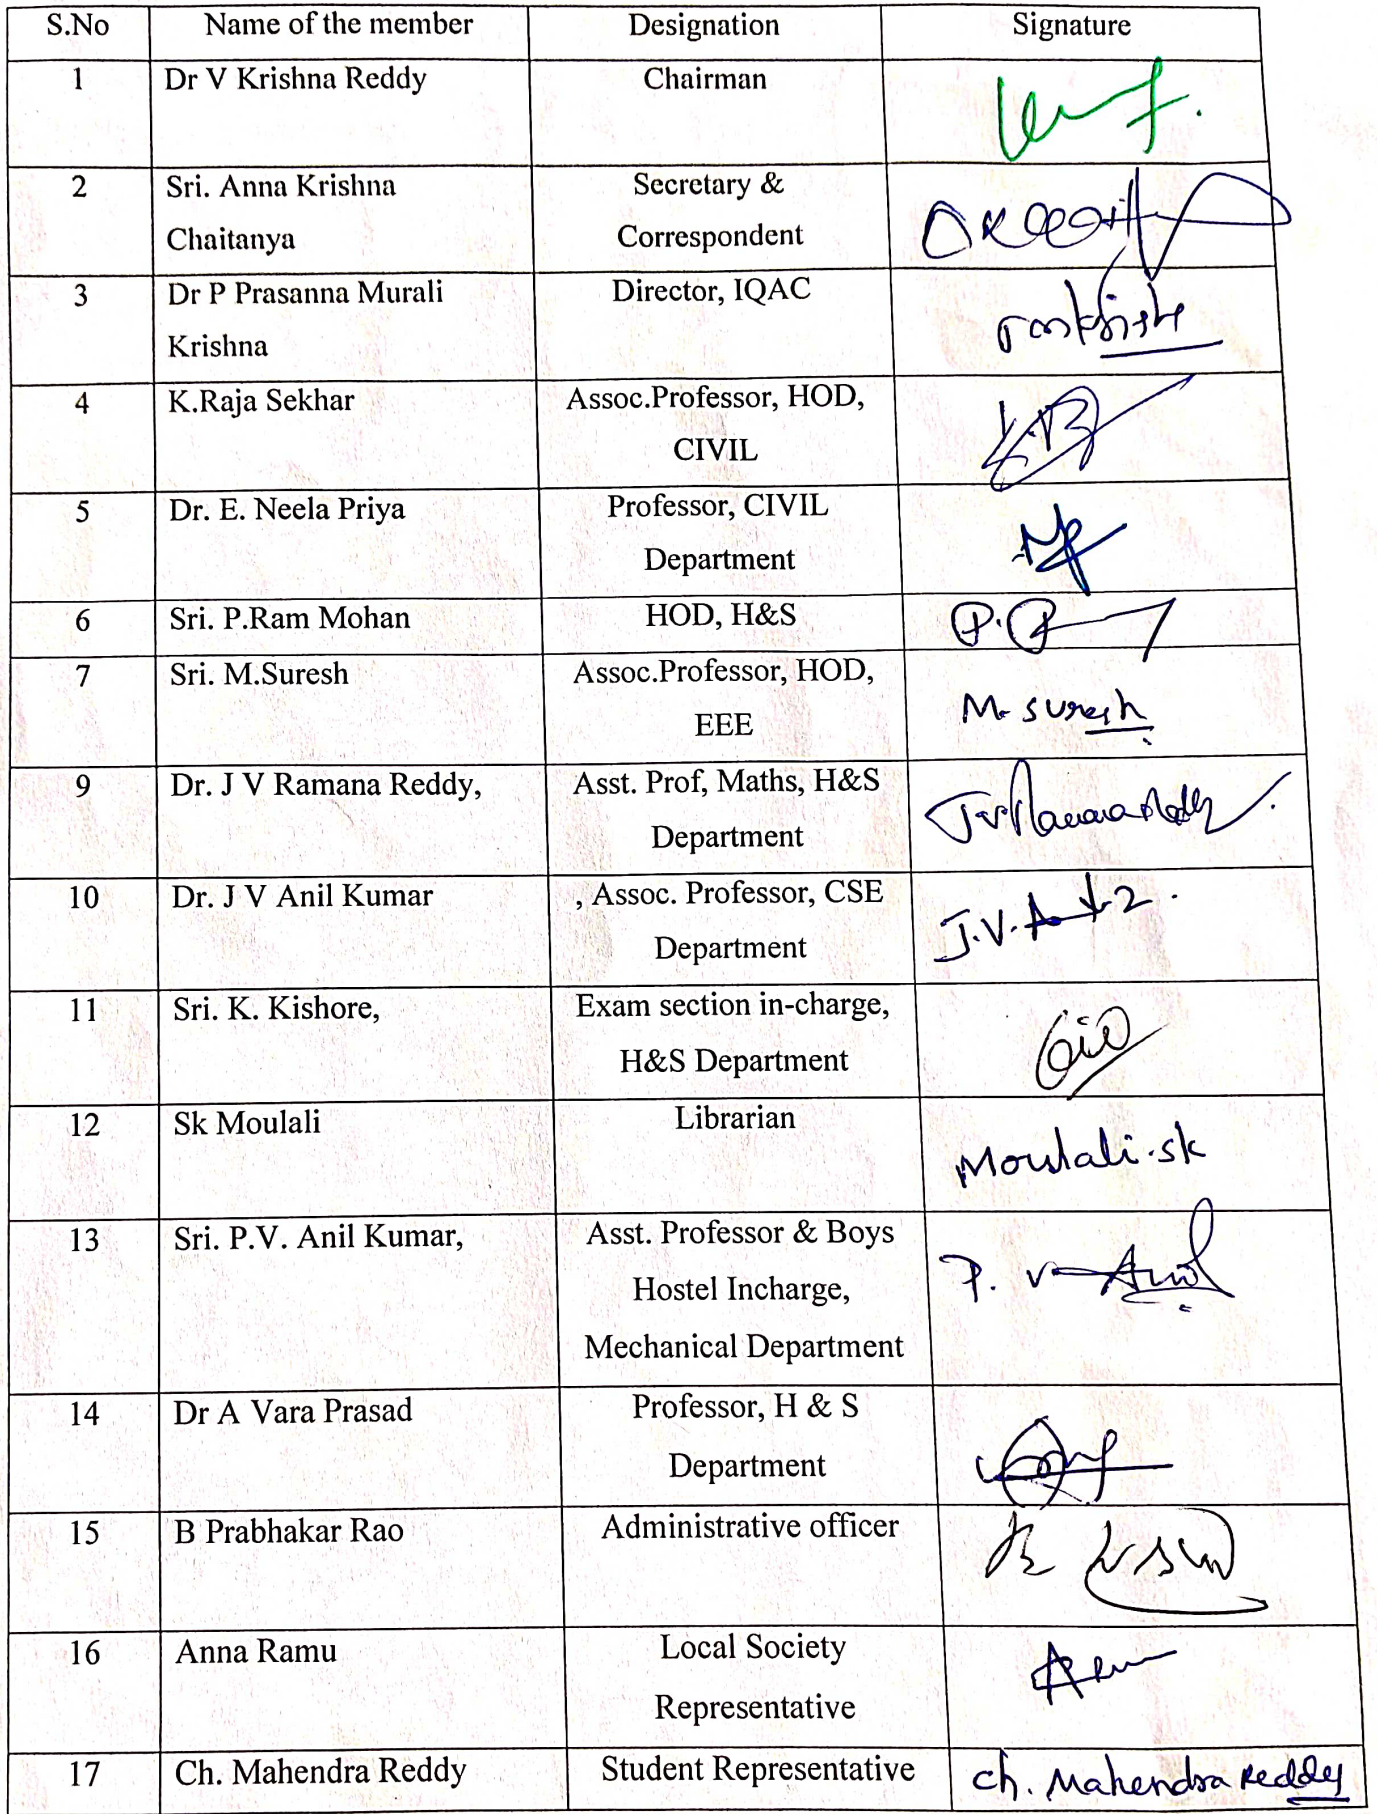 S.No Name of the member Designation Signature
1 Dr V Krishna Reddy Chairman
2 Sri. Anna Krishna Secretary &
Chaitanya Correspondent
3 Dr P Prasanna Murali Director, IQAC
Krishna
4 K.Raja Sekhar Assoc.Professor, HOD,
CIVIL
5 Dr. E. Neela Priya Professor, CIVIL
Department
6 Sri. P.Ram Mohan HOD, H&S
7 Sri. M.Suresh Assoc.Professor, HOD,
EEE M. Suresh
9 Dr. J V Ramana Reddy, Asst. Prof, Maths, H&S
Department J.V Ramana Reddy
10 Dr. J V Anil Kumar , Assoc. Professor, CSE
Department J.V.
11 Sri. K. Kishore, Exam section in-charge,
H&S Department
12 Sk Moulali Librarian
Moulali.sk
13 Sri. P.V. Anil Kumar, Asst. Professor & Boys
Hostel Incharge, P. V Anil
Mechanical Department
14 Dr A Vara Prasad Professor, H & S
Department
15 B Prabhakar Rao Administrative officer
16 Anna Ramu Local Society
Representative
17 Ch. Mahendra Reddy Student Representative Ch. Mahendra Reddy